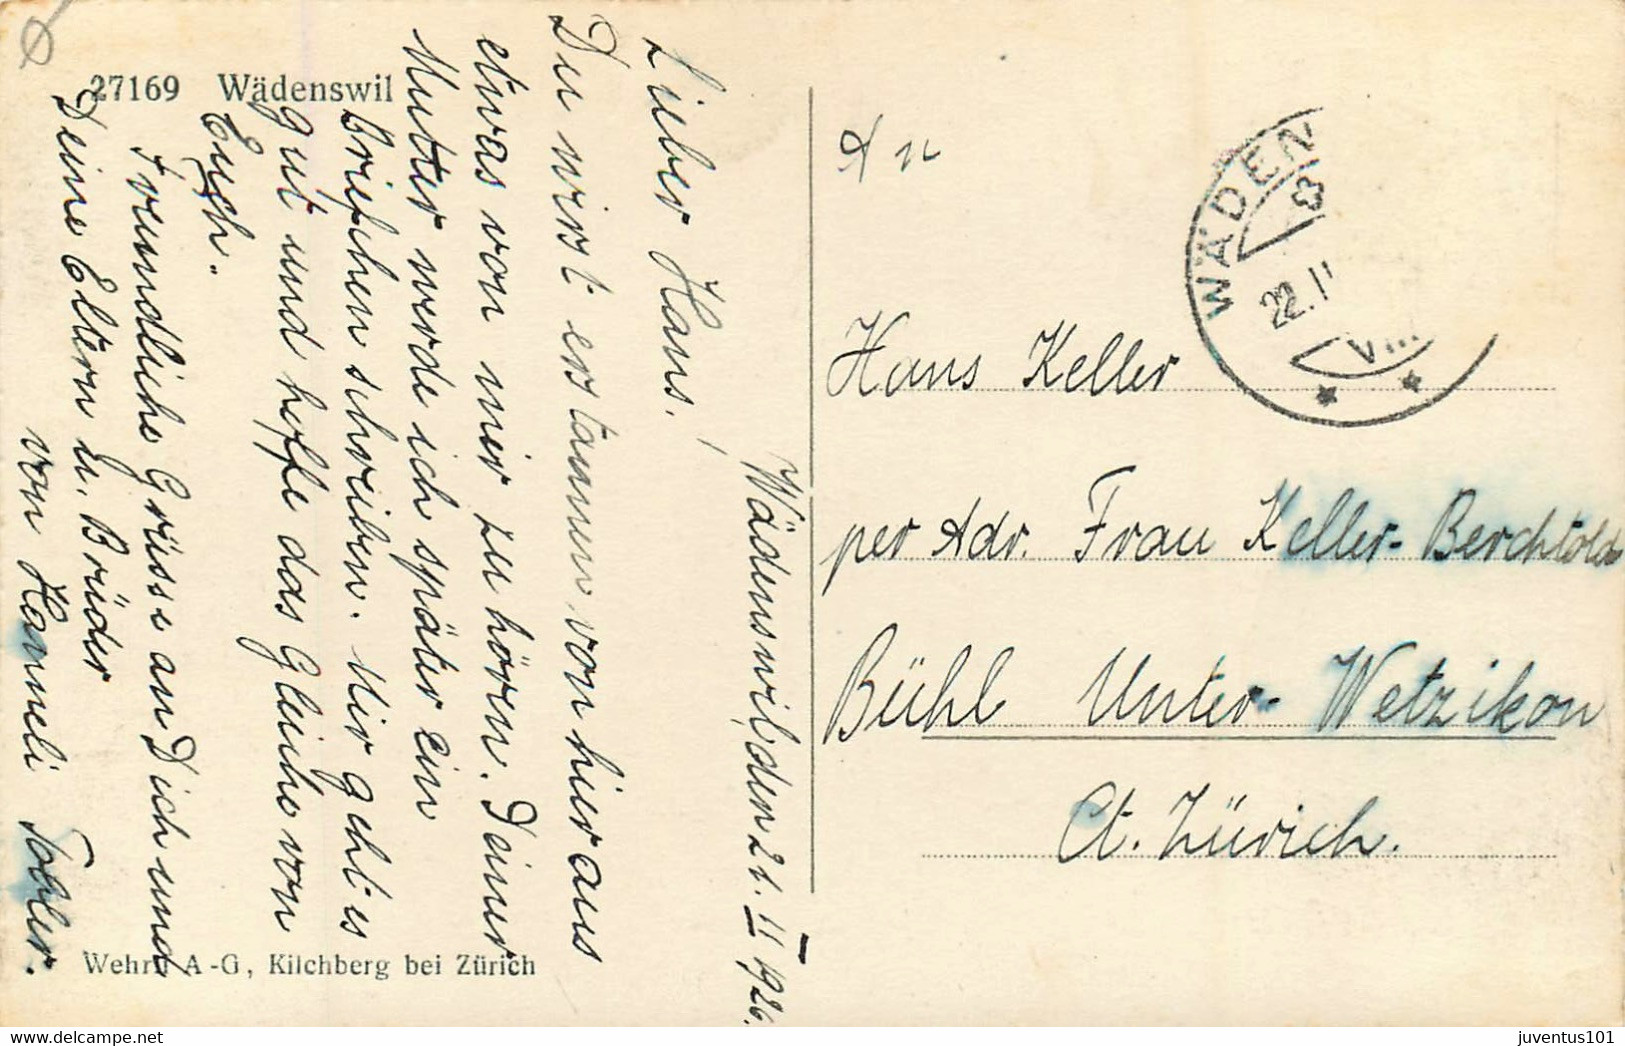 27169 Wädenswil
Wädenswil, den 21. II 1926.
Lieber Hans.
Du wirst erstaunen von hier aus
etwas von mir zu hören. Deiner
Mutter werde ich später ein
Briefchen schreiben. Mir geht is
gut und hoffe das Gleiche von
Euch.
Freundliche Grüsse an Dich und
Deine Eltern u. Brüder
von Hanneli Tobler.
Wehrli A-G, Kilchberg bei Zürich
An
Hans Keller
per Adr. Frau Keller-Berchtold
Bühl Unter-Wetzikon
Ct. Zürich.
WÄDEN
22.II
VIII
juventus101